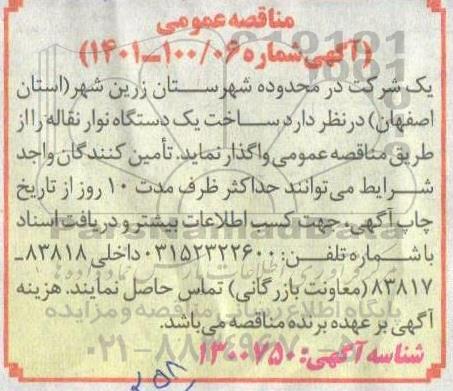 مناقصه عمومی
(آگهی شماره ۱۰۰/۰۶_۱۴۰۱)
یک شرکت در محدوده شهرستان زرین شهر(استان
اصفهان) درنظر دارد ساخت یک دستگاه نوار نقاله را از
طریق مناقصه عمومی واگذار نماید. تأمین کنندگان واجد
شرایط می توانند حداکثر ظرف مدت ۱۰ روز از تاریخ
چاپ آگهی، جهت کسب اطلاعات بیشتر و دریافت اسناد
با شماره تلفن: ۰۳۱۵۲۳۲۲۶۰۰ داخلی ۸۳۸۱۸_
۸۳۸۱۷ (معاونت بازرگانی) تماس حاصل نمایند. هزینه
آگهی بر عهده برنده مناقصه می باشد.
شناسه آگهی: ۱۳۰۰۷۵۰
پایگاه اطلاع رسانی مناقصه و مزایده